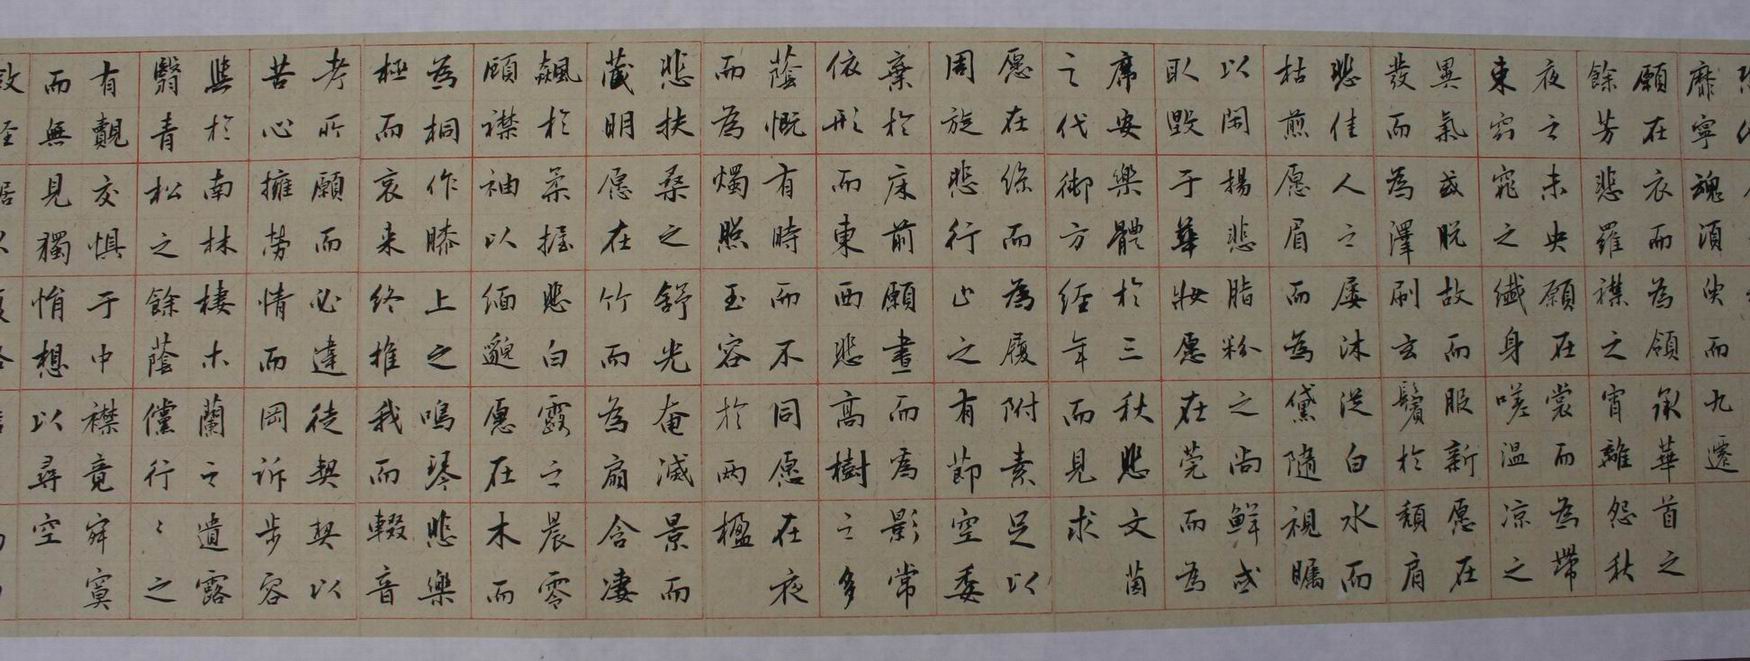 靡寧魂須臾而九遷
願在衣而為領承華首之
餘芳悲羅襟之宵離怨秋
夜之未央願在裳而為帶
束窈窕之纖身嗟温凉之
異氣或脫故而服新愿在
發而為澤刷玄鬢於頹肩
悲佳人之屢沐從白水而
枯煎愿眉而為黛隨視瞩
以閑揚悲脂粉之尚鮮或
取毀于華妝愿在莞而為
席安樂體於三秋悲文茵
之代御方经年而見求
愿在絲而為履附素足以
周旋悲行止之有節空委
棄於床前願晝而為影常
依形而東西悲高樹之多
蔭慨有時而不同愿在夜
而為燭照玉容於兩楹
悲扶桑之舒光奄滅景而
藏明愿在竹而為扇含凄
飆於柔握悲白露之晨零
顧襟袖以緬邈愿在木而
為桐作膝上之鳴琴悲樂
極而哀来終推我而輟音
考所願而必違徒契契以
苦心擁勞情而岡诉步容
與於南林棲木蘭之遺露
翳青松之餘蔭儻行々之
有覿交惧于中襟竟寂寞
而無見獨悁想以尋空